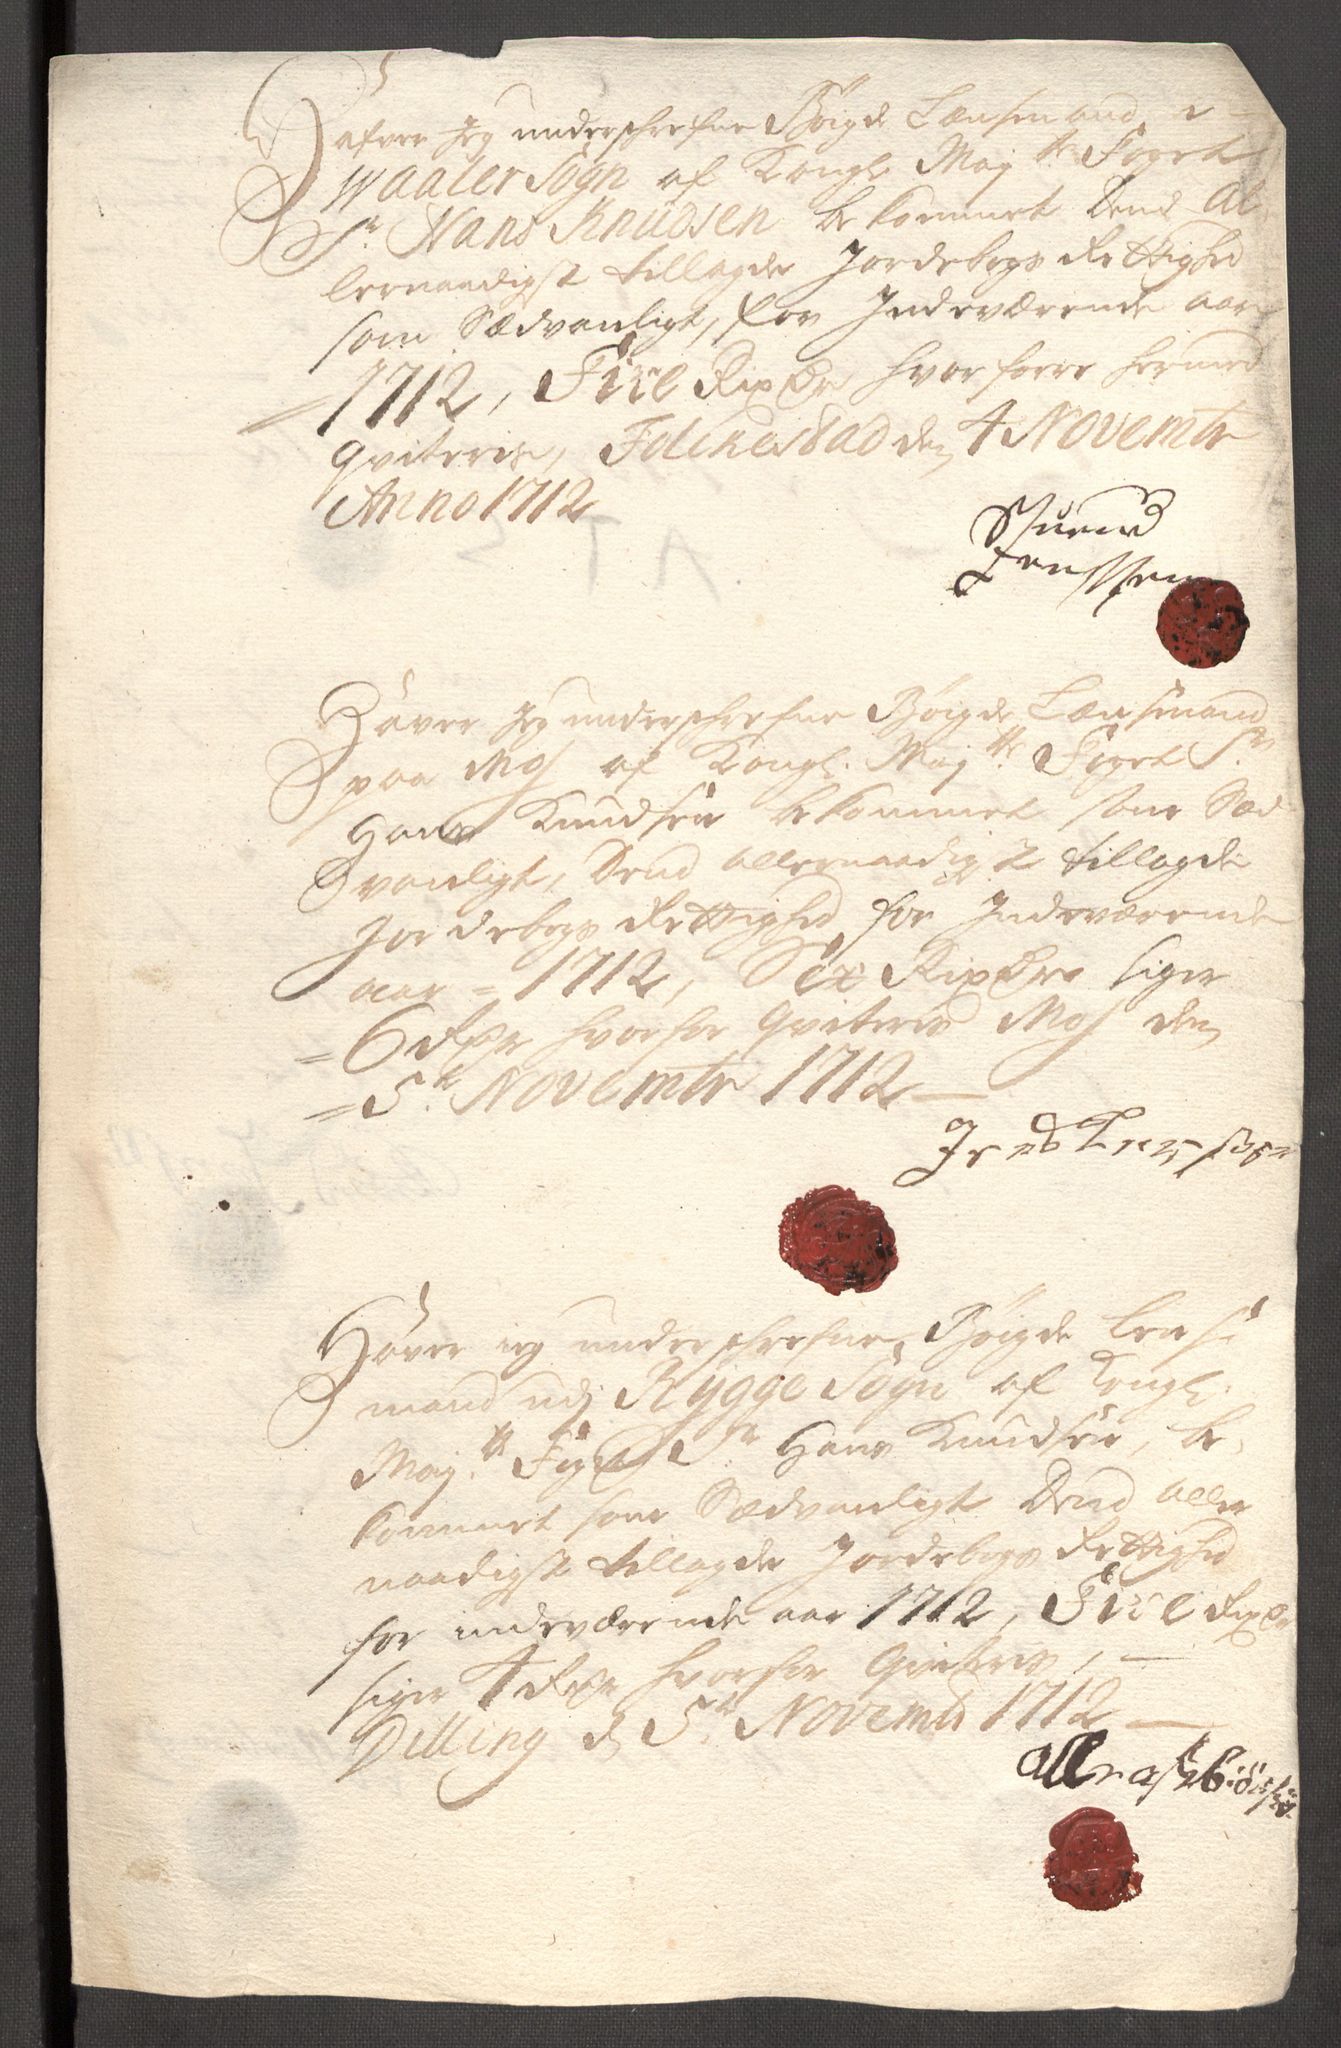 Hafver Jeg underschrefne Bøigde Lænsmand i
Waaler Sogn af Kongl: May:tts Foget
Sr: Hans Knudsen bekommet Dend Al
lernaadigst tillagde Jordebogs Rettighed
som Sædvanligt, for Indeværende aar
1712, Fire Rixdr hvorforre hermed
qviteris, Folckestad den 4 Novembr
Anno 1712
Jenssen
Hawer Jeg underschrefne Bøigde Lænsmand
paa Mos af Kongl: May:tts Foget Sr:
Hans Knudsen bekommet som Sæd
vanligt, Dend allernaadigst tillagde
Jordebogs Rettighed for Indeværende
aar = 1712, Sex Rixdr siger
= 6 Rdr hvorfor qviteris Mos den
= 5te Novembr 1712
Hawer ieg underschrefne Bøigde Lens
mand udj Rygge Sogn af Kongl:
May:tts Foget Sr Hans Knudsen, be
kommet som Sædvanligt Dend aller
naadigst tillagde Jordebogs Rettighed
for indeværende aar 1712, Fire Rixdr
siger 4 Rdr hvorfor qviteris,
Dilling d 5te Novemb 1712